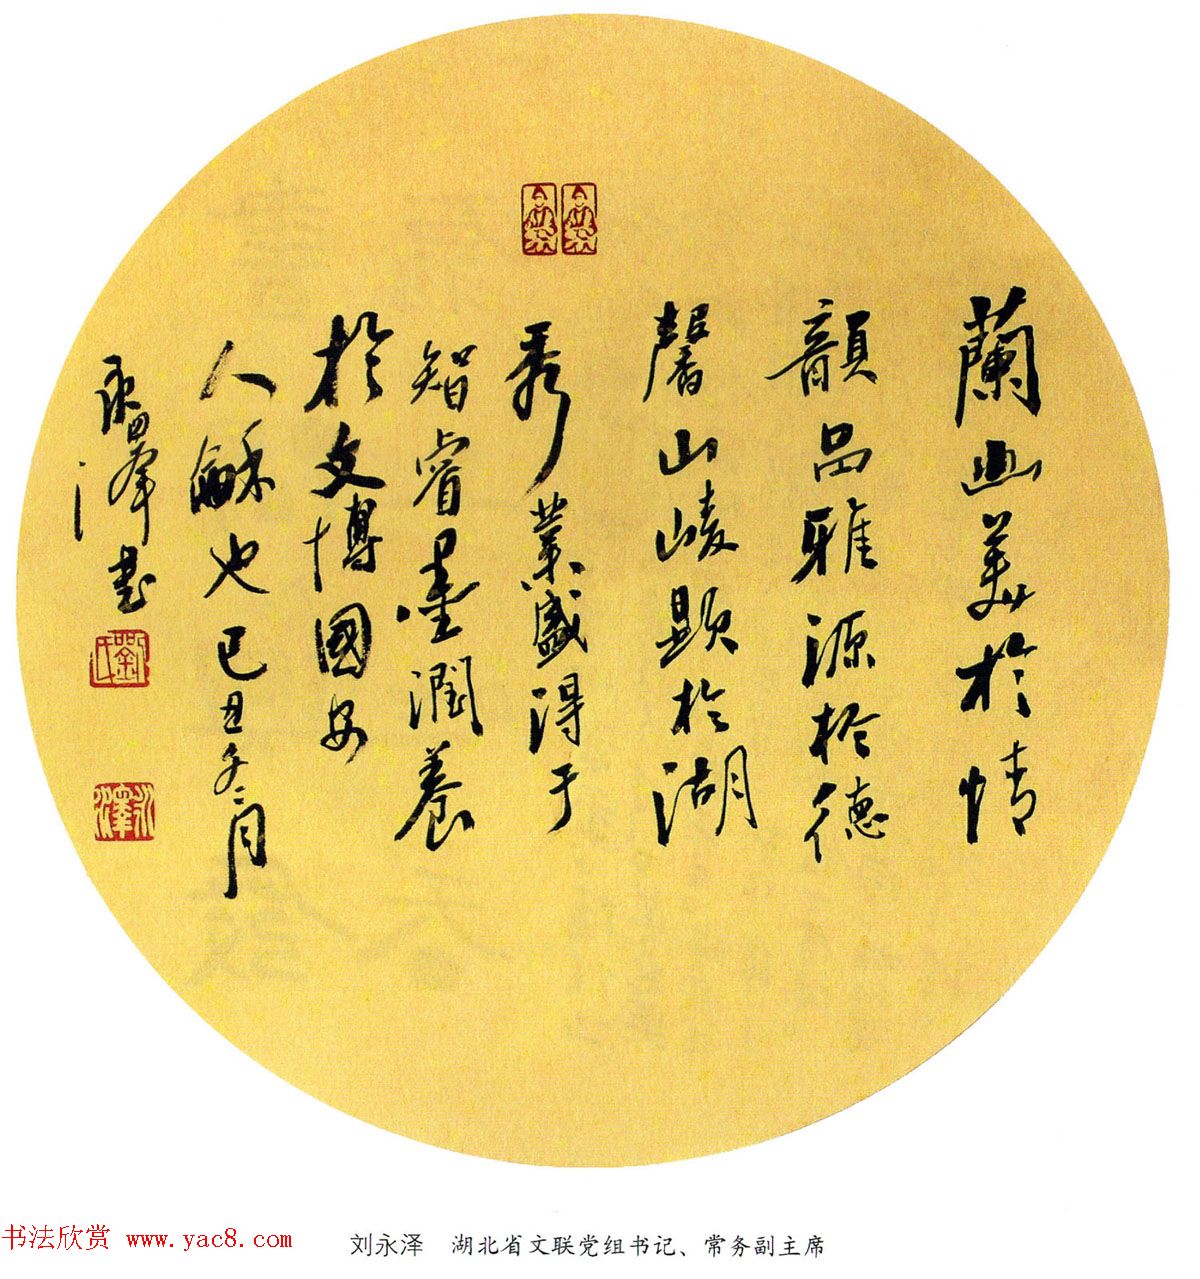 蘭幽美於情
韻品雅源於德
馨山峻顯於湖
秀業盛得于
智睿墨潤養
於文博國安
人龢也己丑冬二月
永澤書
劉氏
永澤
书法欣赏 www.yac8.com
刘永泽 湖北省文联党组书记、常务副主席